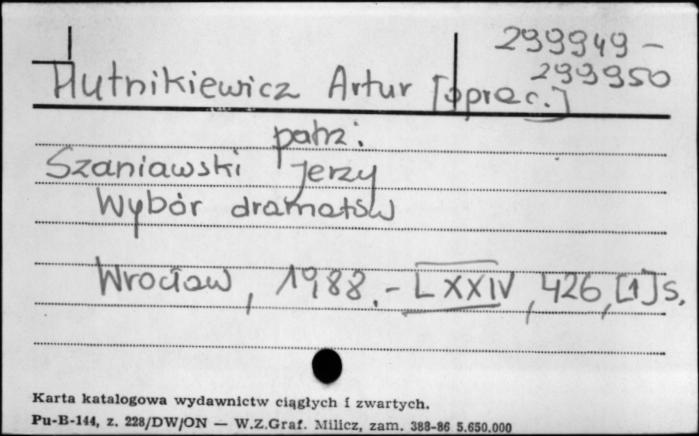 299949 -
299950
Hutnikiewicz Artur [oprac.]
patrz:
Szaniawski Jerzy
Wybór dramatów
Wrocław, 1988. - LXXIV, 426, [1] s.
Karta katalogowa wydawnictw ciągłych i zwartych.
Pu-B-144, z. 228/DW/ON — W.Z.Graf. Milicz, zam. 388-86 5.650.000